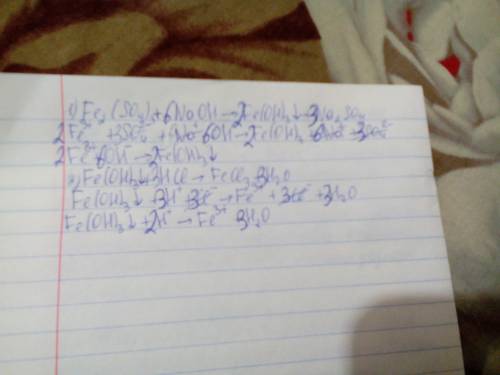 1) Fe₂(SO₄)₃+6NaOH→2Fe(OH)₃↓+3Na₂SO₄
2Fe³⁺ +3SO₄²⁻ +6Na⁺ 6OH⁻→2Fe(OH)₃ 6Na⁺ 3SO₄²⁻
2Fe³⁺ 6OH⁻→2Fe(OH)₃↓
2) Fe(OH)₃↓+3HCl→FeCl₃ 3H₂O
Fe(OH)₃↓ +3H⁺ 3Cl⁻→Fe³⁺ +3Cl⁻ +3H₂O
Fe(OH)₃↓ +2H⁺→Fe³⁺ 3H₂O